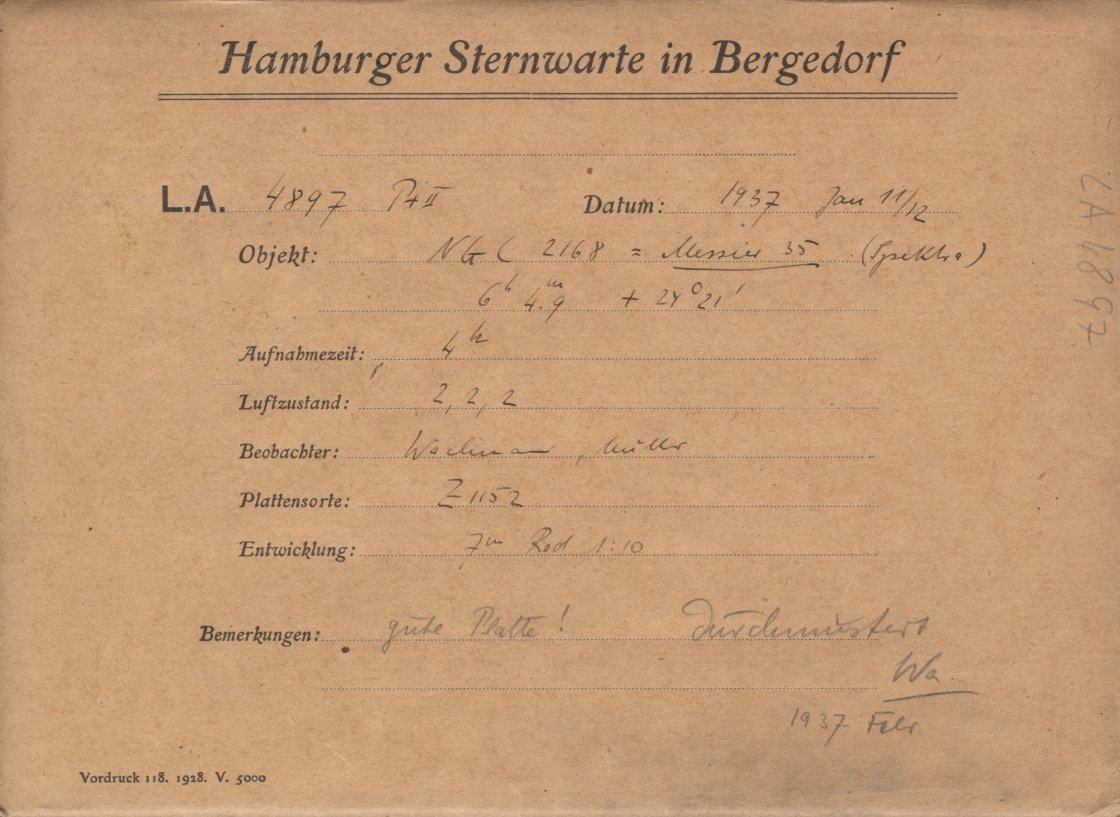 Hamburger Sternwarte in Bergedorf
L.A. 4897 Pr II Datum: 1937 Jan 11/12
Objekt: NGC 2168 = Messier 35 (Spektra)
6h 4.m9 + 24° 21'
Aufnahmezeit: 4h
Luftzustand: 2, 2, 2
Beobachter: Wachmann, Müller
Plattensorte: Z 1152
Entwicklung: 7m Rod 1:10
Bemerkungen: gute Platte! Durchmustert
Wa
1937 Febr
Vordruck 118. 1928. V. 5000
LA 4897